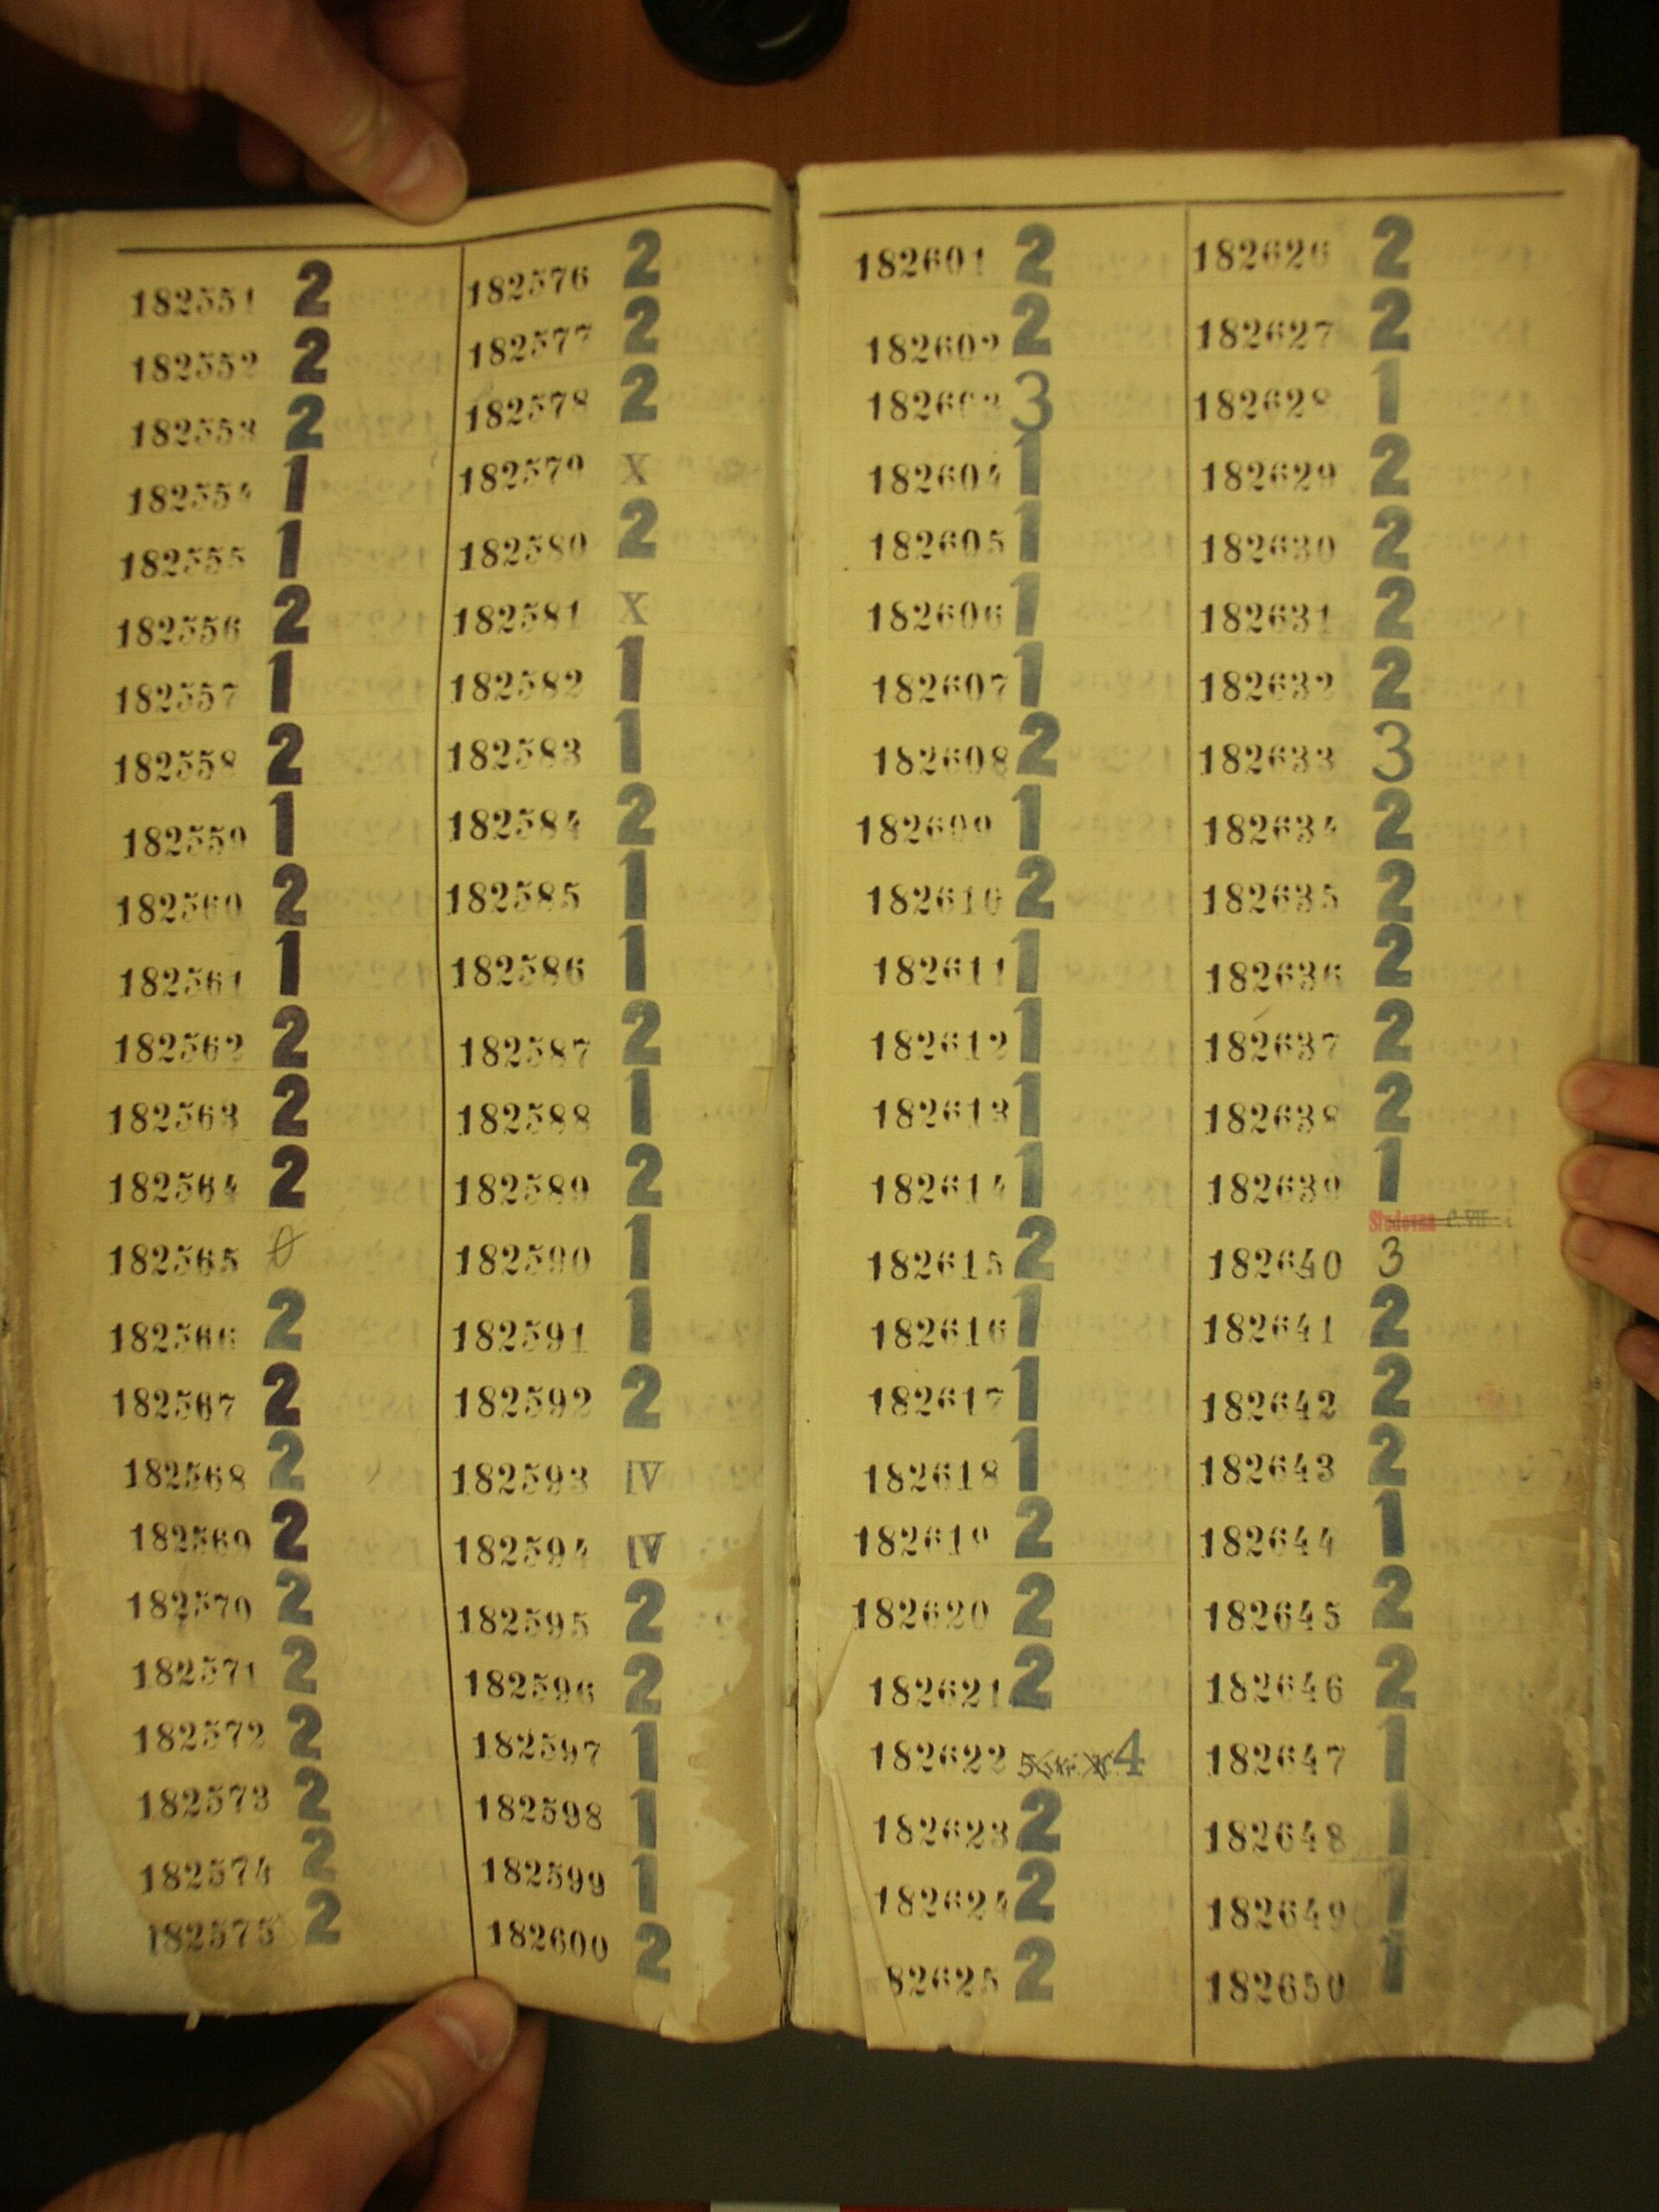 182551 2
182552 2
182553 2
182554 1
182555 1
182556 2
182557 1
182558 2
182559 1
182560 2
182561 1
182562 2
182563 2
182564 2
182565 0
182566 2
182567 2
182568 2
182569 2
182570 2
182571 2
182572 2
182573 2
182574 2
182575 2
182576 2
182577 2
182578 2
182579 X
182580 2
182581 X
182582 1
182583 1
182584 2
182585 1
182586 1
182587 2
182588 1
182589 2
182590 1
182591 1
182592 2
182593 IV
182594 IV
182595 2
182596 2
182597 1
182598 1
182599 1
182600 2
182601 2
182602 2
182603 3
182604 1
182605 1
182606 1
182607 1
182608 2
182609 1
182610 2
182611 1
182612 1
182613 1
182614 1
182615 2
182616 1
182617 1
182618 1
182619 2
182620 2
182621 2
182622 4
182623 2
182624 2
82625 2
182626 2
182627 2
182628 1
182629 2
182630 2
182631 2
182632 2
182633 3
182634 2
182635 2
182636 2
182637 2
182638 2
182639 1
Studovna
182640 3
182641 2
182642 2
182643 2
182644 1
182645 2
182646 2
182647 1
182648 1
182649 1
182650 1